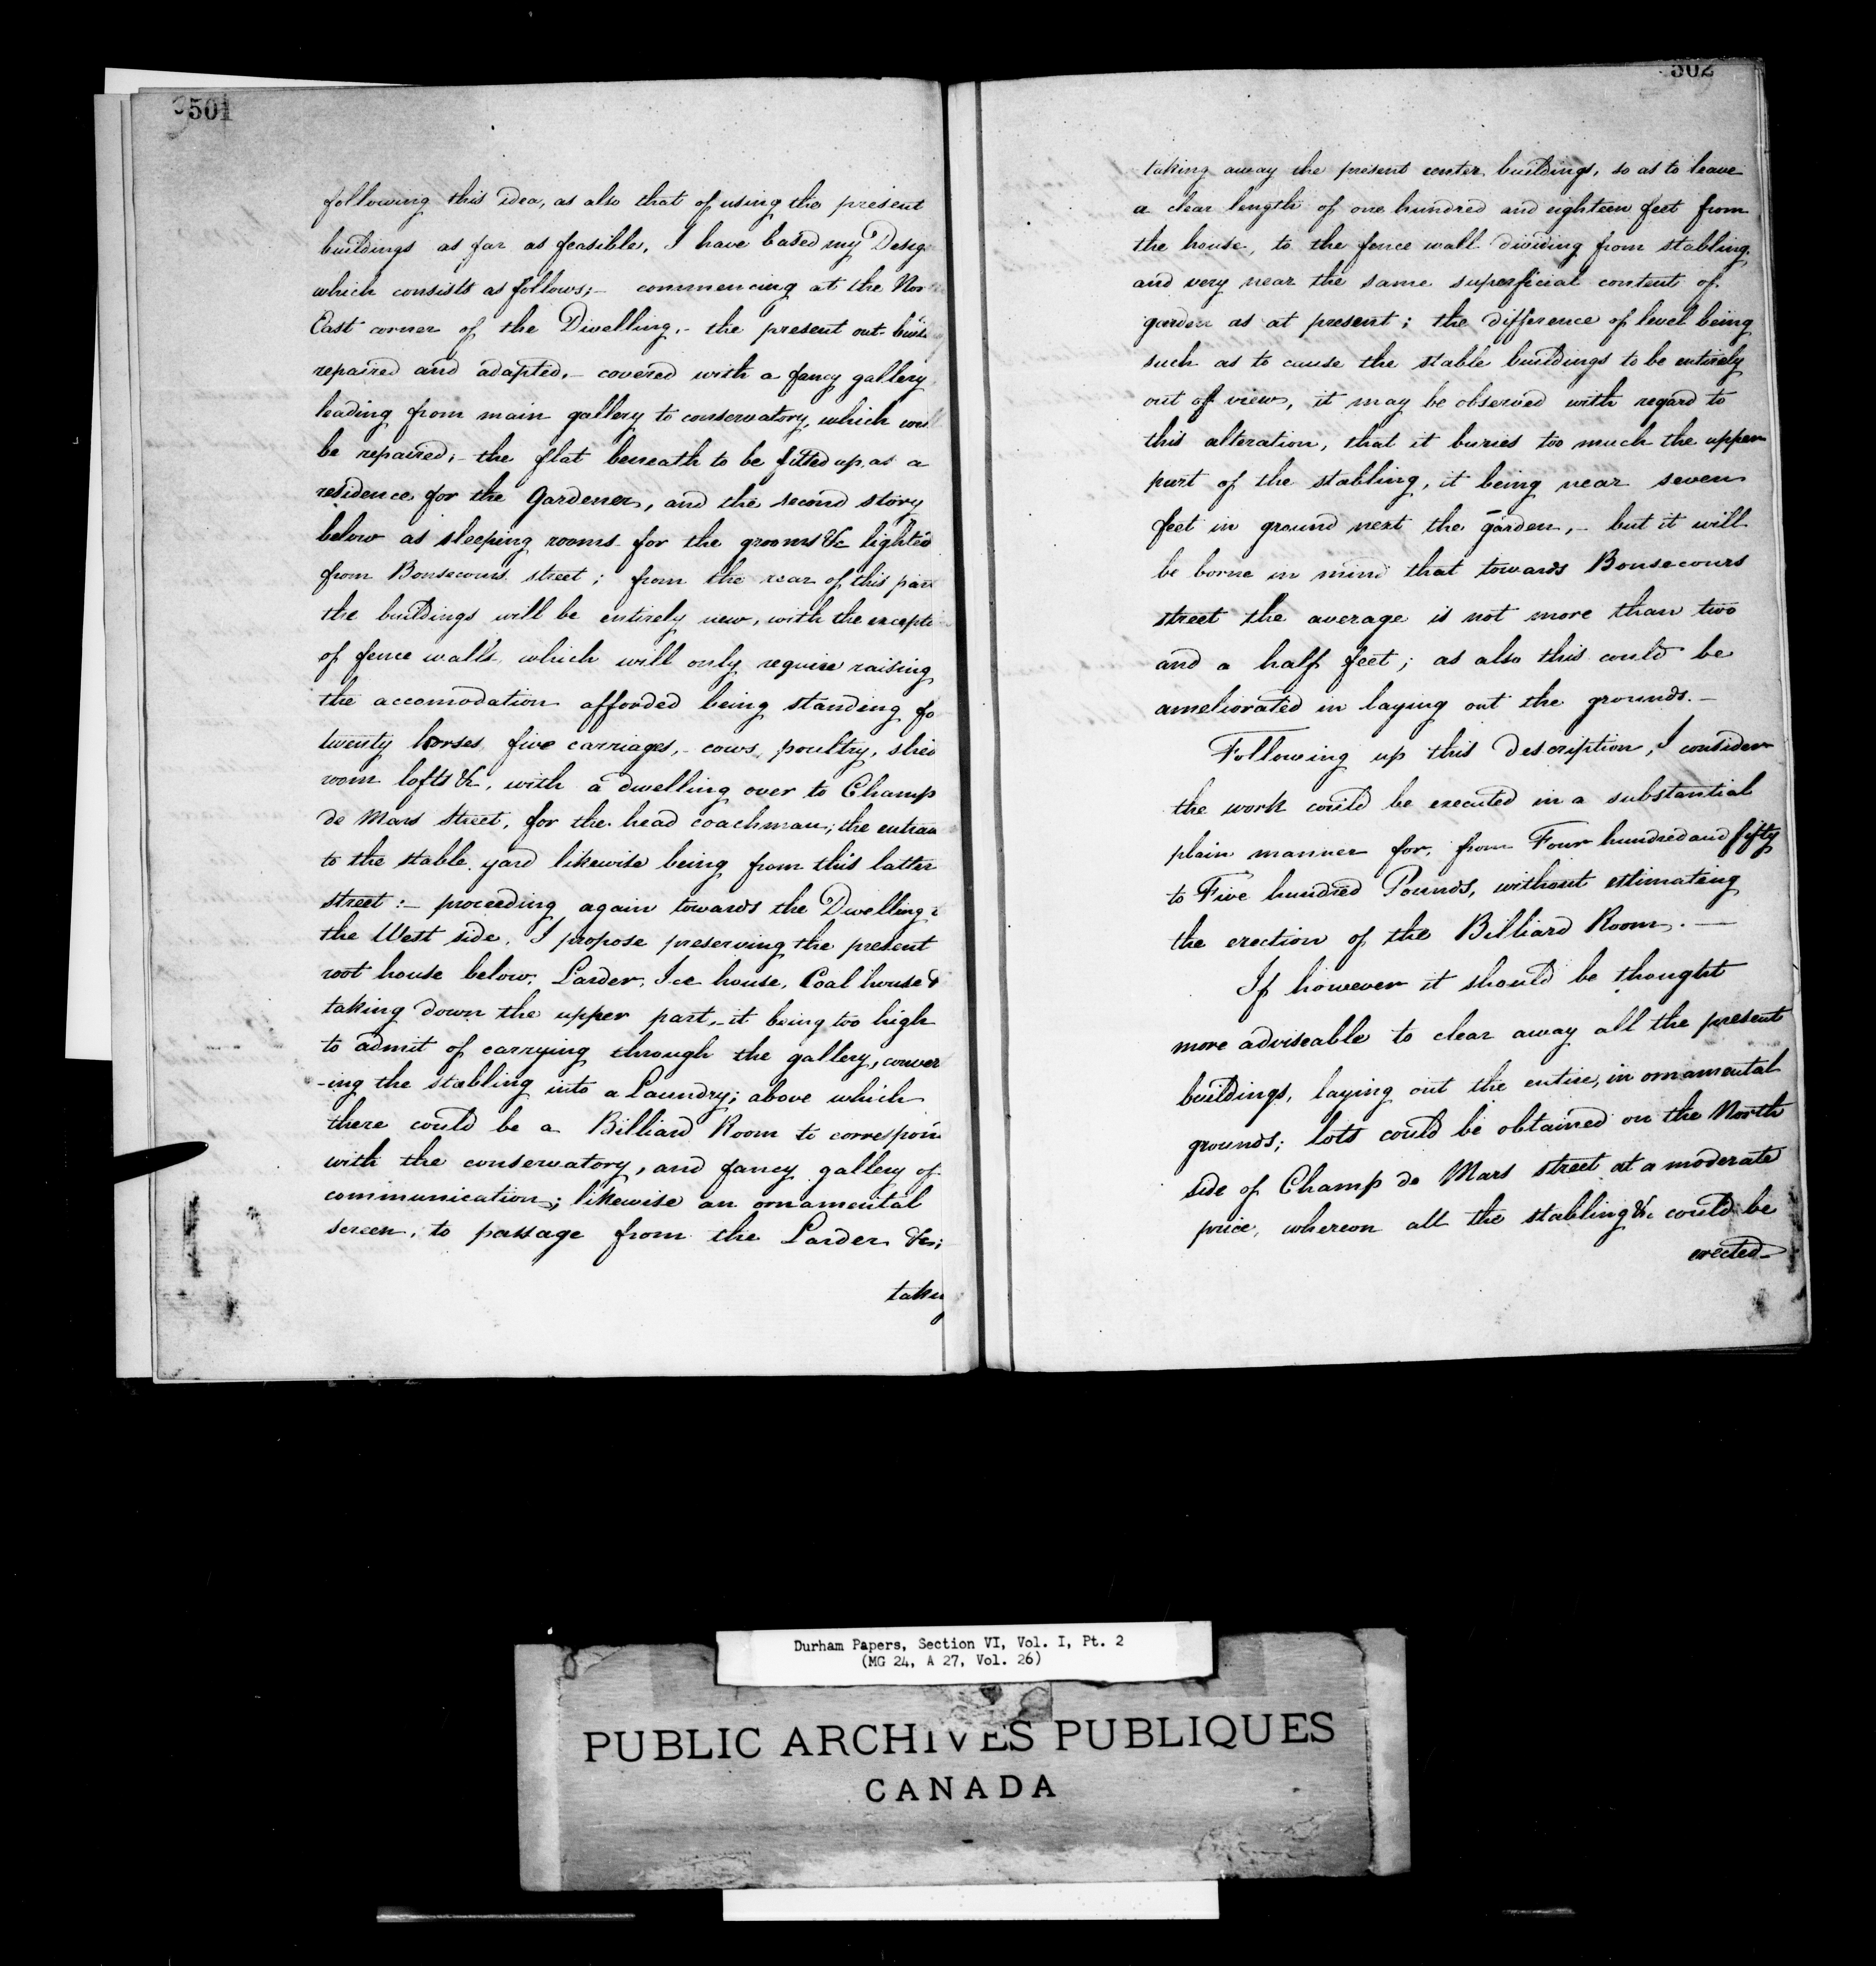 501
following this idea, as also that of using the present
buildings as far as feasible, I have based my Desig
which consists as follows;- commencing at the Nor
East corner of the Dwelling,- the present out-build
repaired and adapted,- covered with a fancy gallery
leading from main gallery to conservatory, which will
be repaired;- the flat beneath to be fitted up as a
residence for the Gardener, and the second story
below as sleeping rooms for the grooms &c lighted
from Bonsecours street; from the rear of this part
the buildings will be entirely new, with the excepti
of fence walls, which will only require raising
the accomodation afforded being standing fo
twenty horses, five carriages,- cows, poultry, shed
room lofts &c, with a dwelling over to Champ
de Mars street, for the head coachman; the entran
to the stable yard likewise being from this latter
street:- proceeding again towards the Dwelling
the West side, I propose preserving the present
root house below, Larder, Ice house, Coal house &
taking down the upper part,- it being too high
to admit of carrying through the gallery, conver
-ing the stabling into a Laundry; above which
there could be a Billiard Room to correspond
with the conservatory, and fancy gallery of
communication; likewise an ornamental
screen, to passage from the Larder &c;
takin
502
taking away the present center buildings, so as to leave
a clear length of one hundred and eighteen feet from
the house, to the fence wall dividing from stabling,
and very near the same superficial content of
garden as at present; the difference of level being
such as to cause the stable buildings to be entirely
out of view, it may be observed with regard to
this alteration, that it buries too much the upper
part of the stabling, it being near seven
feet in ground next the garden,- but it will
be borne in mind that towards Bonsecours
street the average is not more than two
and a half feet; as also this could be
ameliorated in laying out the grounds.-
Following up this description, I consider
the work could be executed in a substantial
plain manner for, from Four hundred and fifty
to Five hundred Pounds, without estimating
the erection of the Billiard Room.-
If however it should be thought
more adviseable to clear away all the present
buildings, laying out the entire, in ornamental
grounds; lots could be obtained on the North
side of Champ de Mars street at a moderate
price, whereon all the stabling &c could be
erected-
Durham Papers, Section VI, Vol. I, Pt. 2
(MG 24, A 27, Vol. 26)
PUBLIC ARCHIVES PUBLIQUES
CANADA